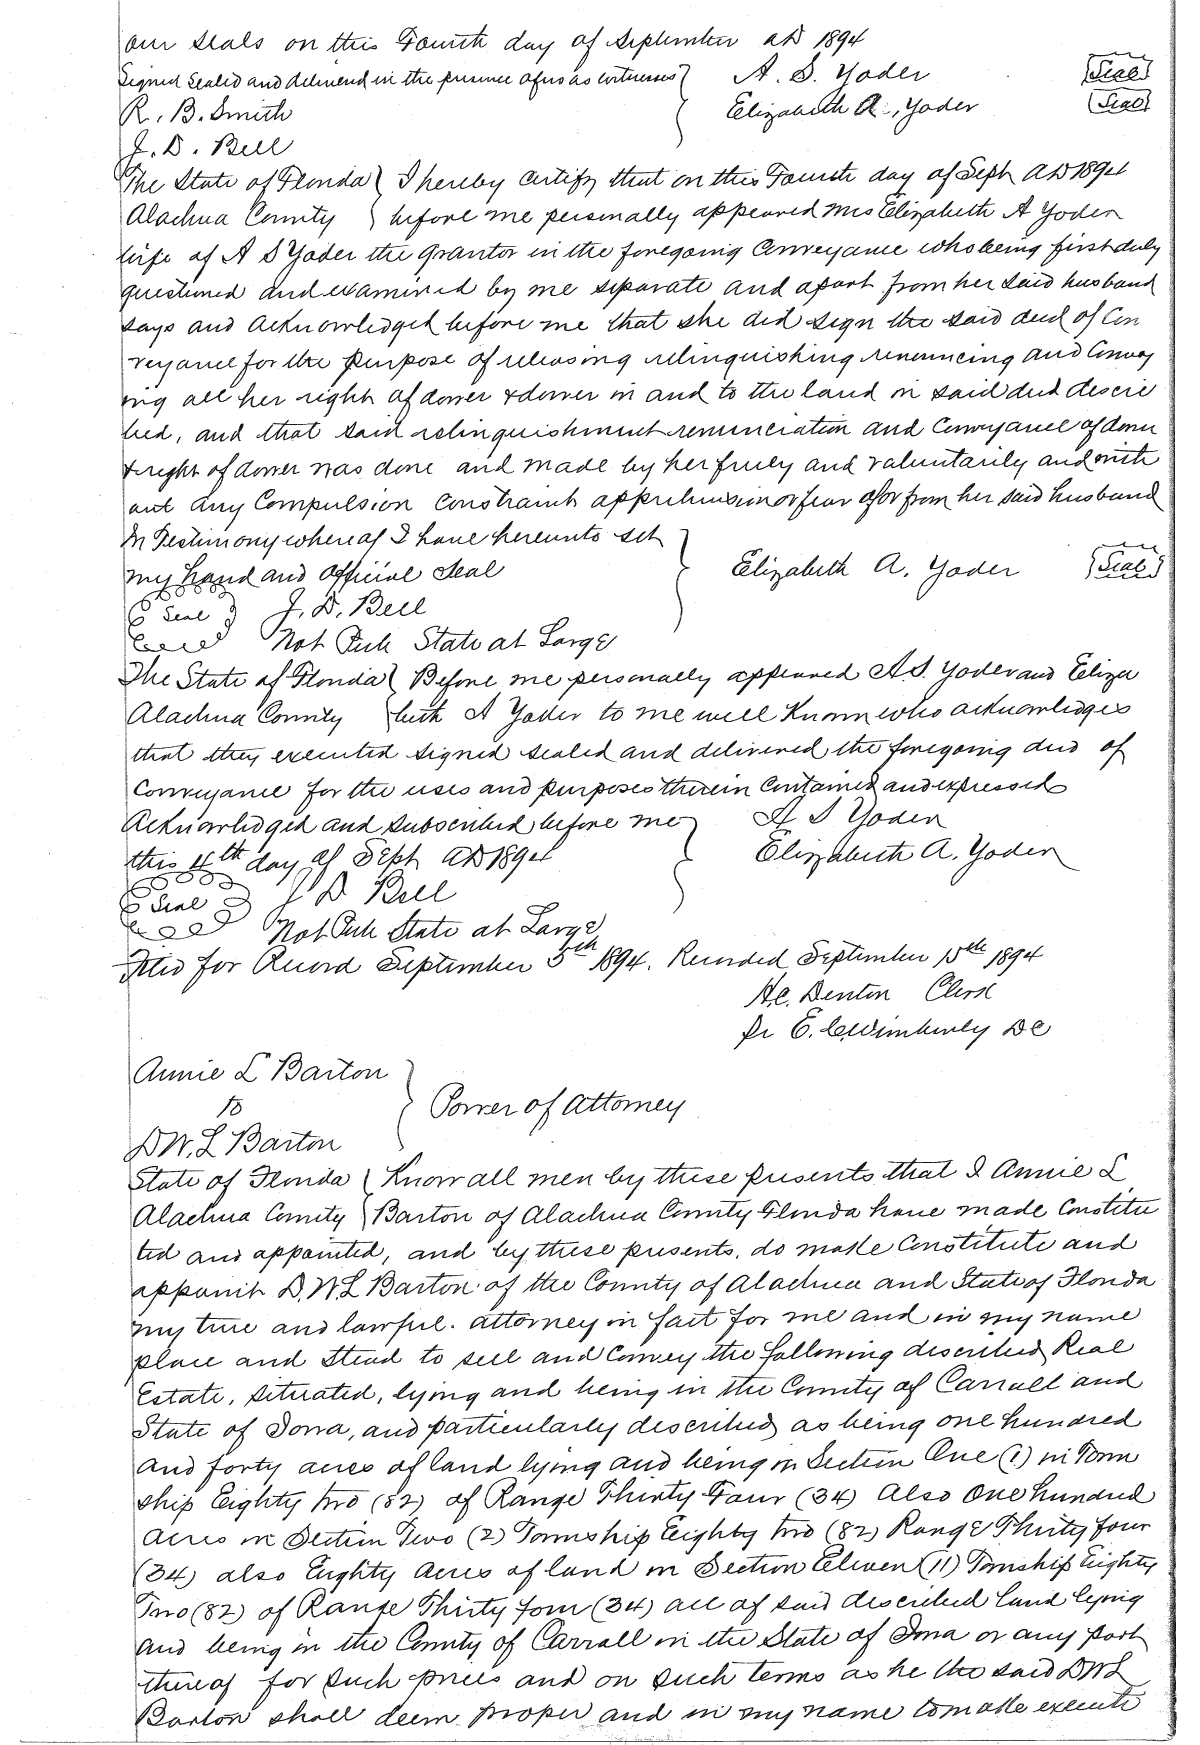 our seals on this Fourth day of September AD 1894
Signed Sealed and delivered in the presence of us as witnesses A. S. Yoder Seal
R. B. Smith Elizabeth A. Yoder Seal
J. D. Bell
The State of Florida I hereby certify that on this Fourth day of Sept AD 1894
Alachua County before me personally appeared Mrs Elizabeth A Yoder
wife of A S Yoder the grantor in the foregoing Conveyance who being first duly
questioned and examined by me separate and apart from her said husband
says and acknowledged before me that she did sign the said deed of Con
veyance for the purpose of releasing relinquishing renouncing and Convey
ing all her right of dower & dower in and to the land in said deed descri
bed, and that said relinquishment renunciation and Conveyance of dower
& right of dower was done and made by her freely and voluntarily and with
out any Compulsion Constraint apprehension or fear of or from her said husband
In Testimony whereof I have hereunto set
my hand and official Seal Elizabeth A. Yoder Seal
Seal J. D. Bell
Not Pub State at Large
The State of Florida Before me personally appeared A.S. Yoder and Eliza
Alachua County beth A Yoder to me well Known who acknowledges
that they executed signed sealed and delivered the foregoing deed of
Conveyance for the uses and purposes therein Contained and expressed
Acknowledged and subscribed before me A S Yoder
this 4th day of Sept AD 1894 Elizabeth A. Yoder
Seal J D Bell
Not Pub State at Large
Filed for Record September 5th 1894. Recorded September 15th 1894
H.C. Denton Clerk
Pr E. C. Wimberly DC
Annie L Barton
to Power of Attorney
D W. L Barton
State of Florida Know all men by these presents that I Annie L
Alachua County Barton of Alachua County Florida have made Constitu
ted and appointed, and by these presents, do make Constitute and
appoint D. W L Barton of the County of Alachua and State of Florida
my true and lawful attorney in fact for me and in my name
place and Stead to sell and Convey the following described Real
Estate, situated, lying and being in the County of Carroll and
State of Iowa, and particularly described as being one hundred
and forty acres of land lying and being in Section One (1) in Town
ship Eighty two (82) of Range Thirty Four (34) Also One hundred
acres in Section Two (2) Township Eighty two (82) Range Thirty four
(34) also Eighty acres of land in Section Eleven (11) Township Eighty
Two (82) of Range Thirty four (34) all of said described land lying
and being in the County of Carroll in the State of Iowa or any part
thereof for such prices and on such terms as he the said D W L
Barton shall deem proper and in my name to make execute